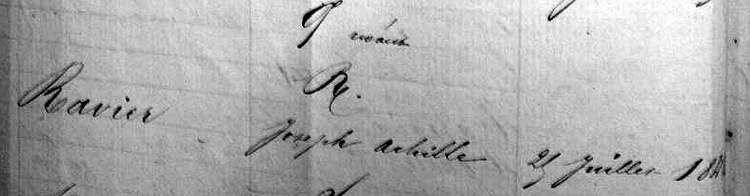 R.
Ravier Joseph achille 21 Juillet 18